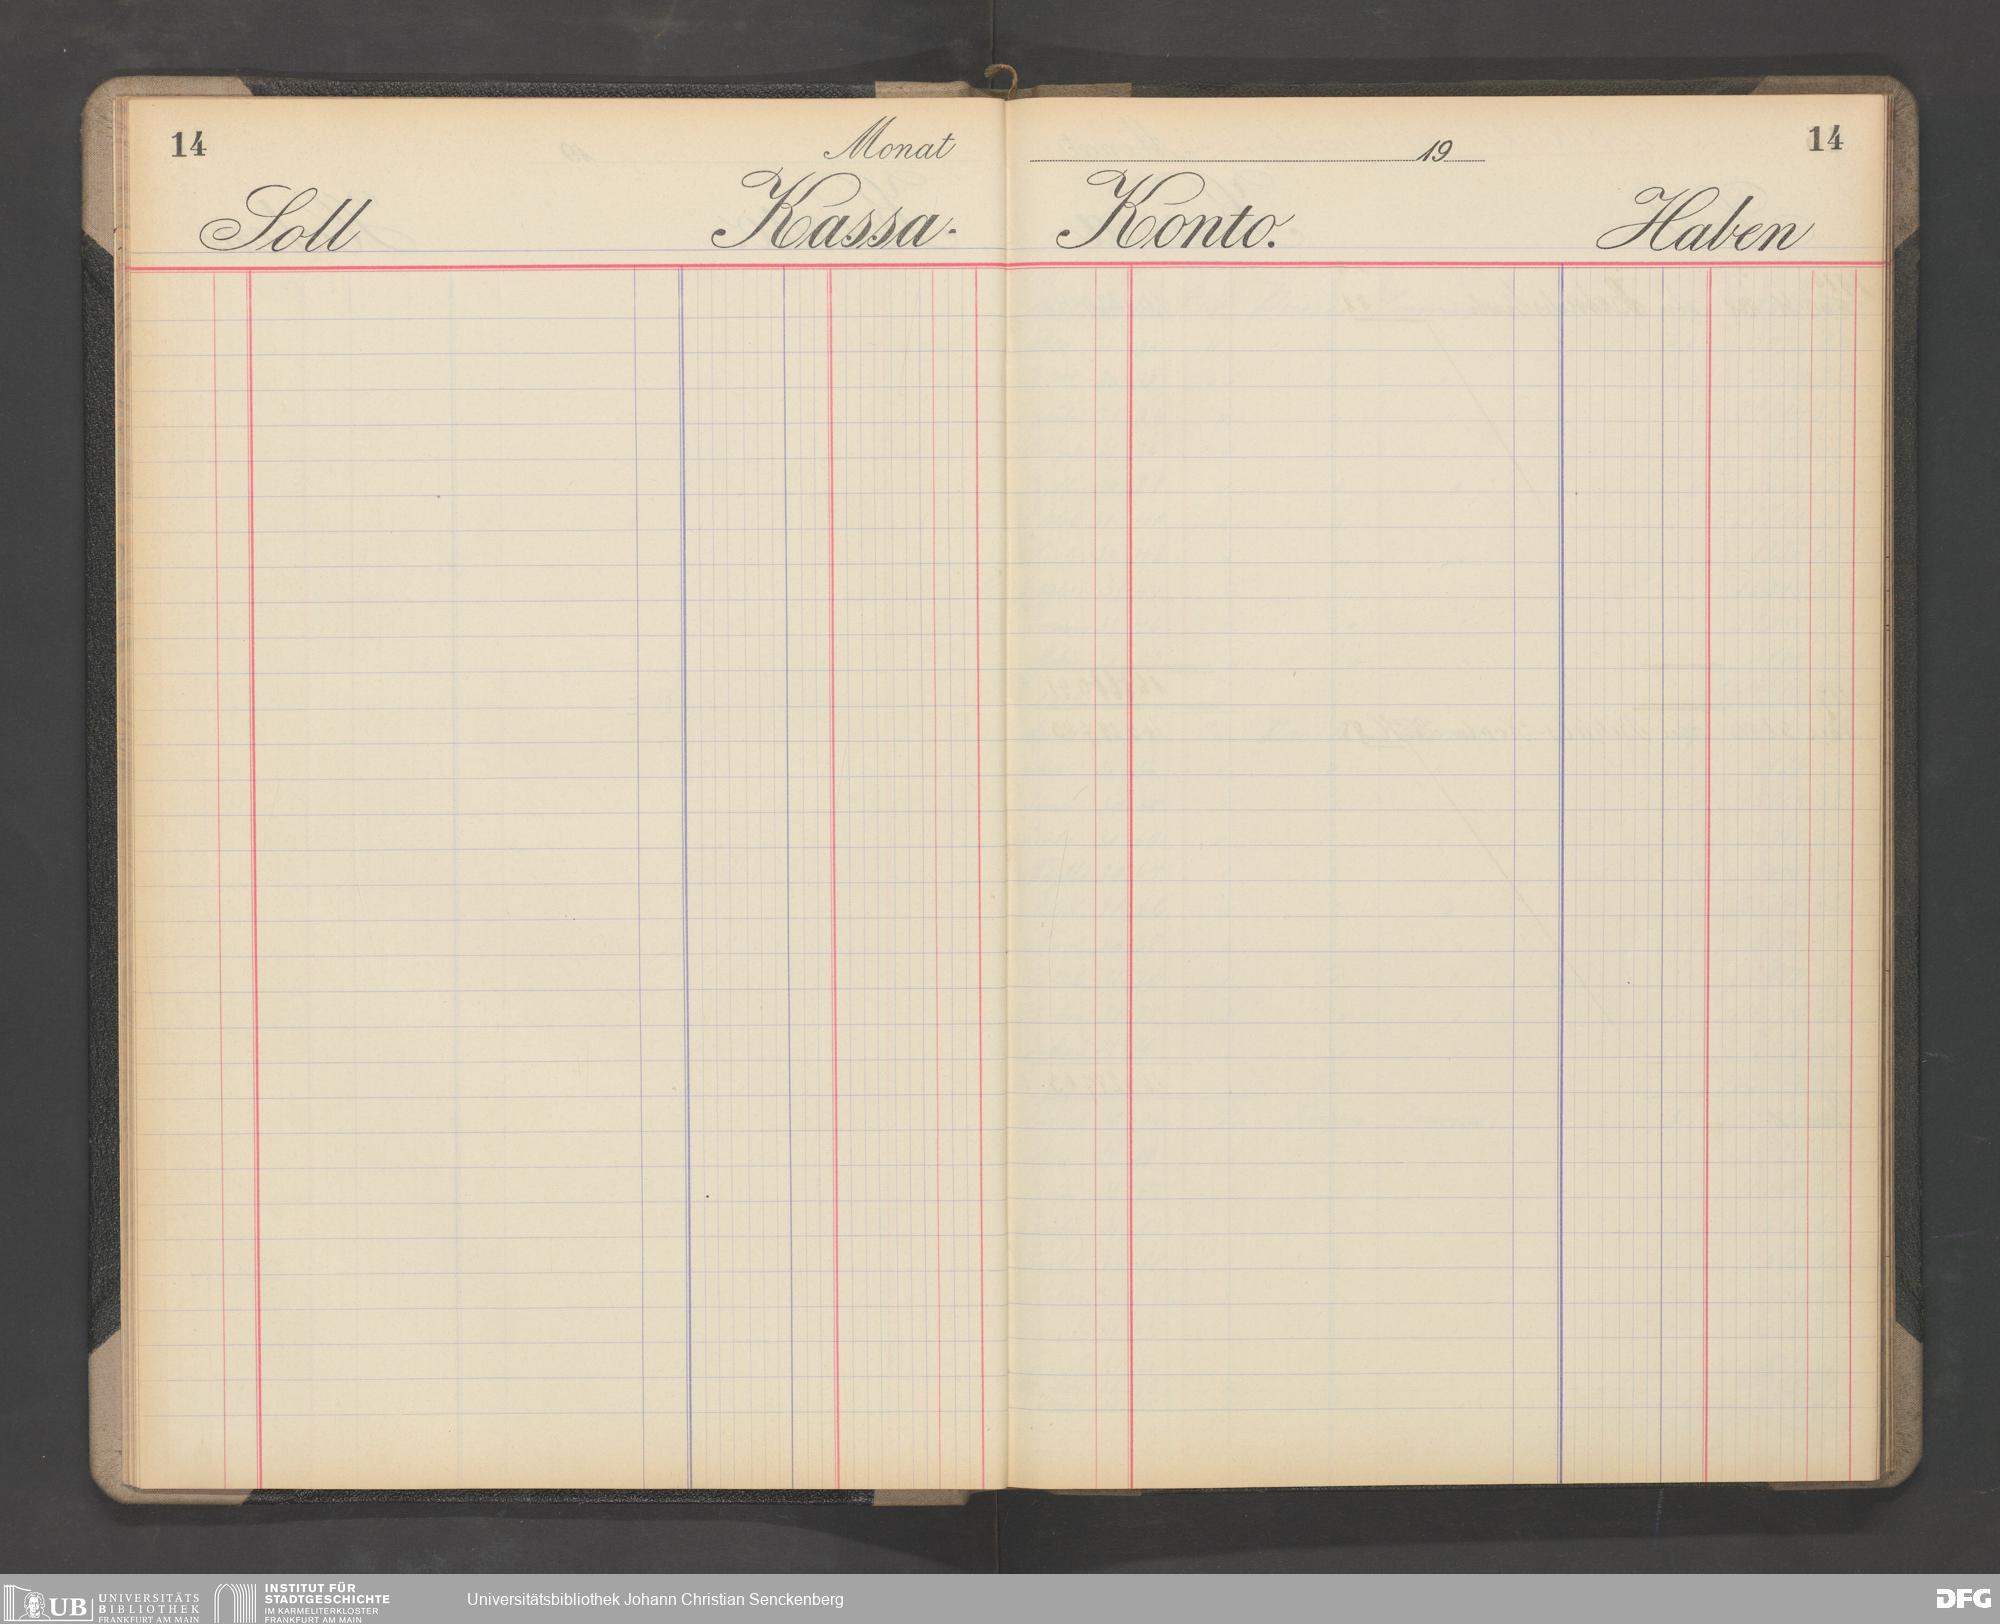 14 Monat 19 14
Soll Kassa- Konto. Haben
UB UNIVERSITÄTS
BIBLIOTHEK
FRANKFURT AM MAIN
INSTITUT FÜR
STADTGESCHICHTE
IM KARMELITERKLOSTER
FRANKFURT AM MAIN
Universitätsbibliothek Johann Christian Senckenberg
DFG